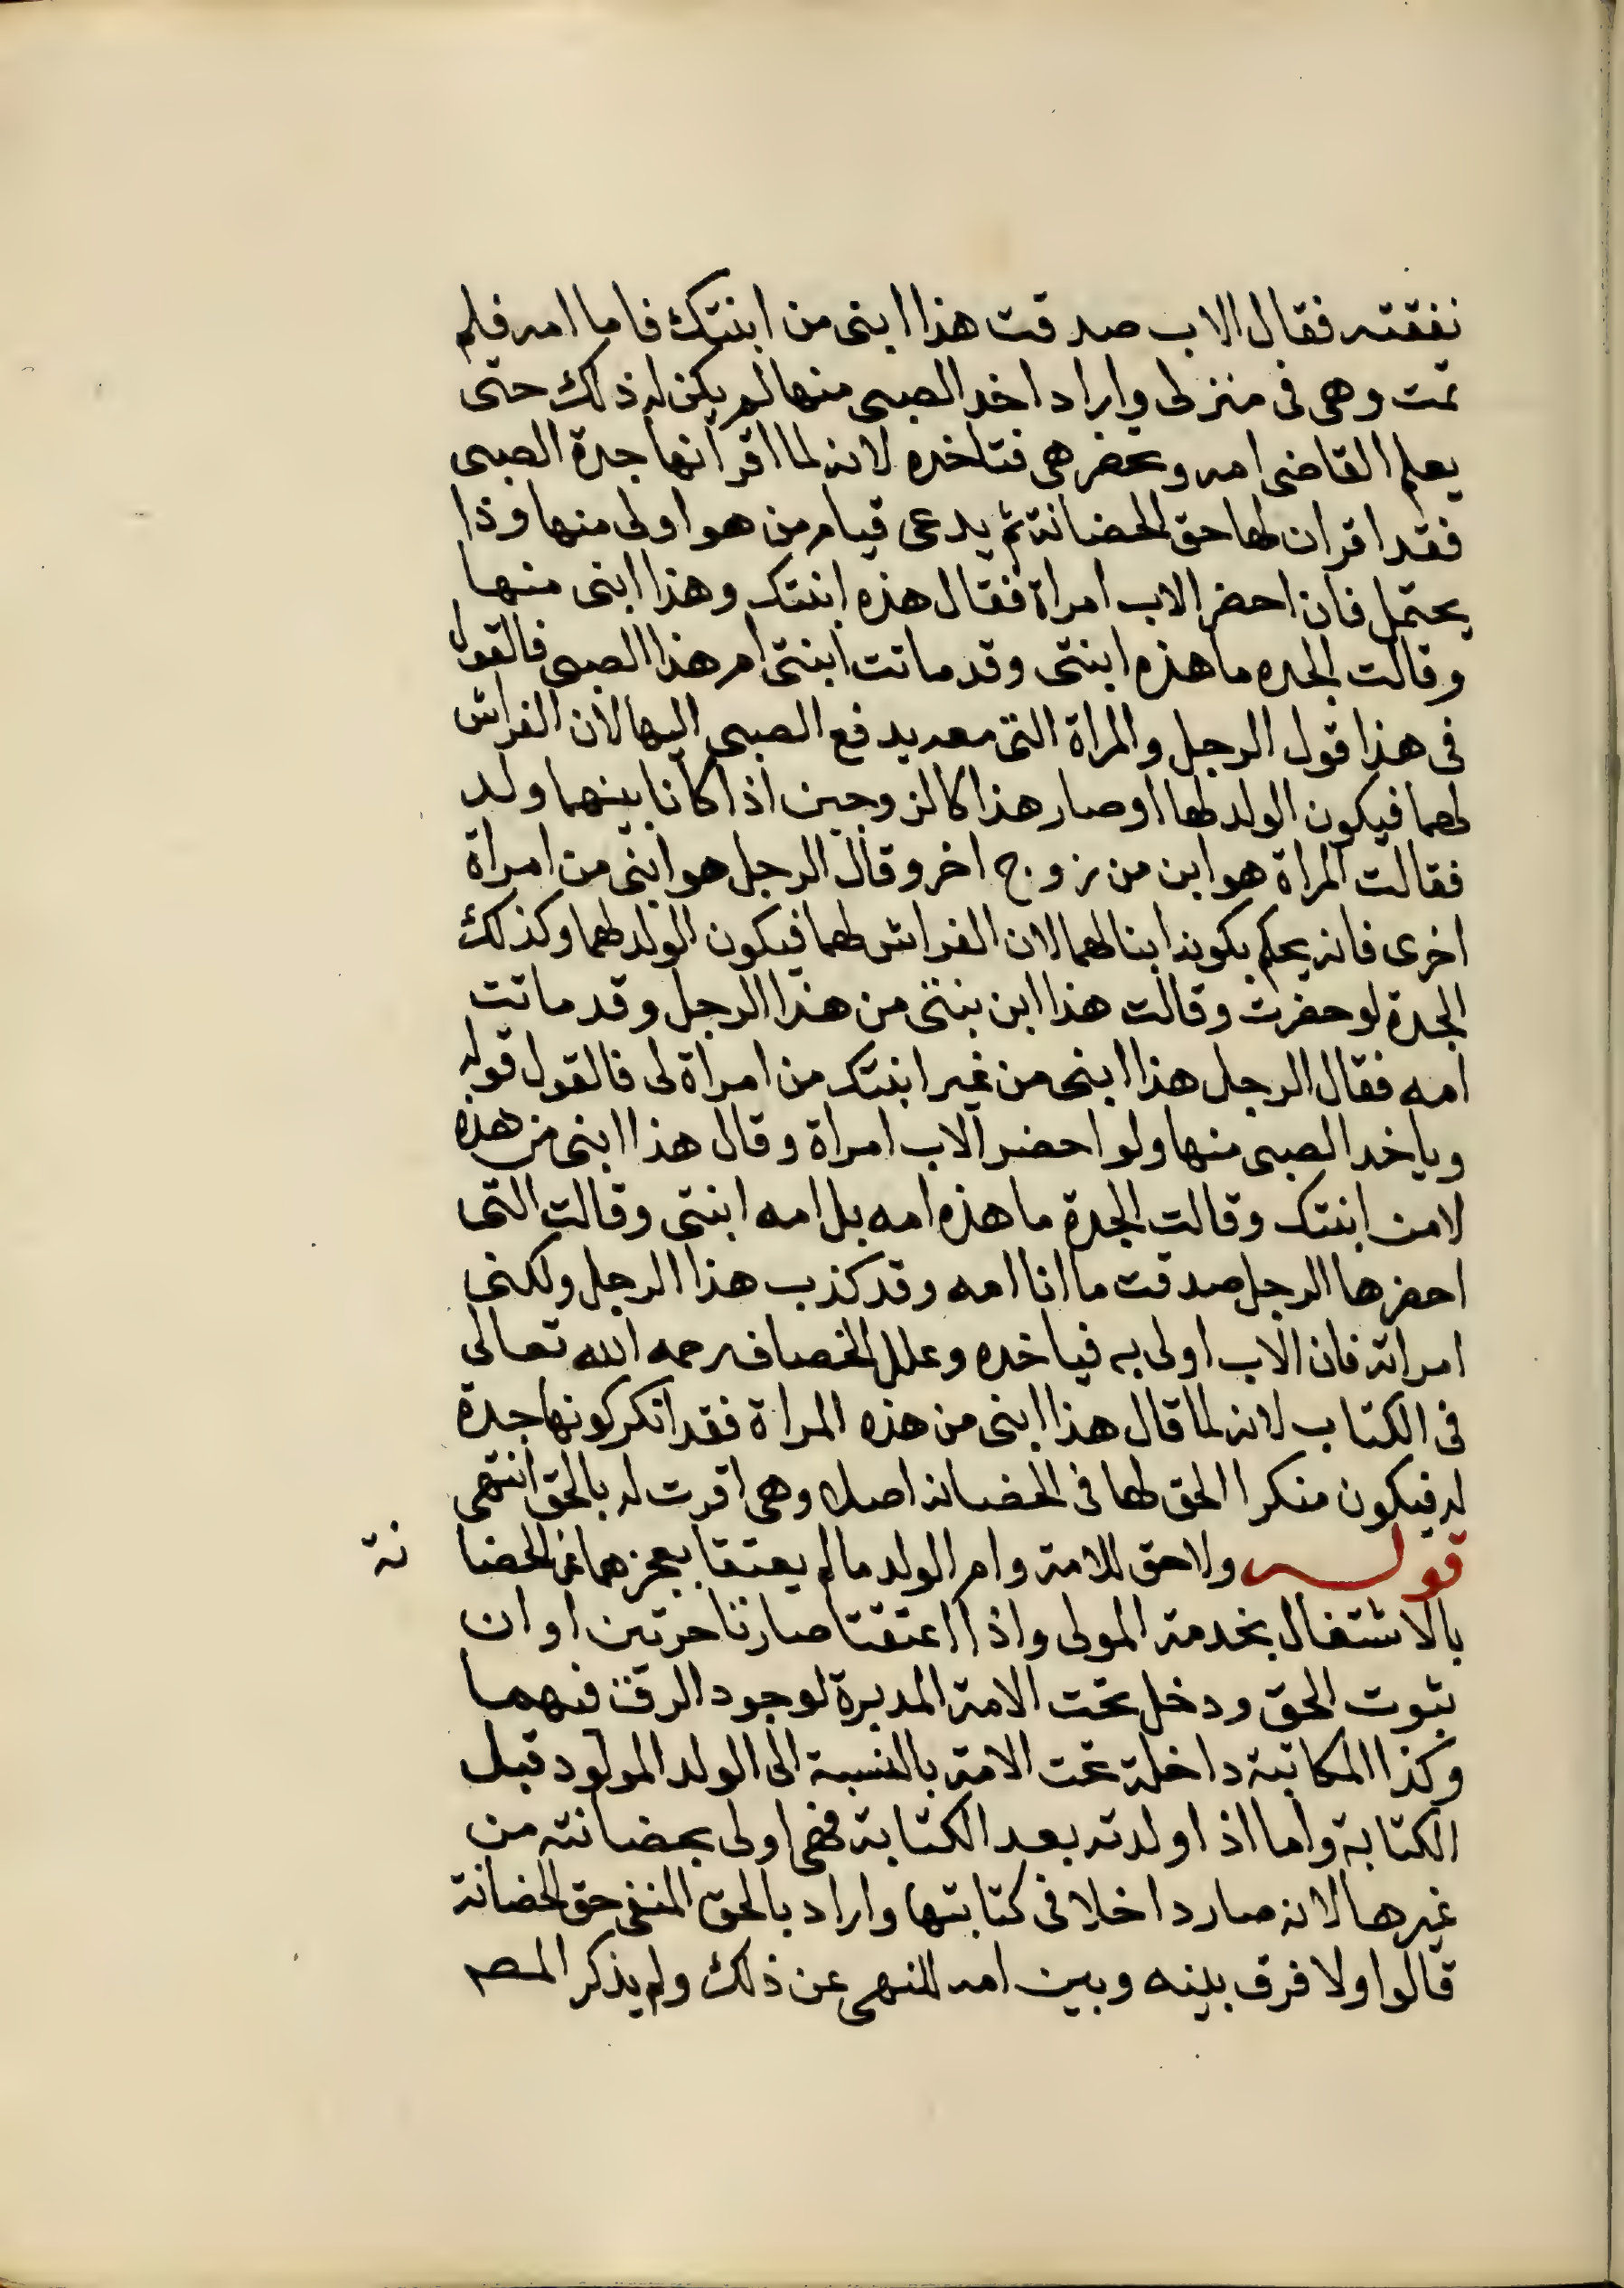 نفقته فقال الاب صدقت هذا ابنى من ابنتك فاما امه فلم
تمت وهى فى منزلى واراد اخد الصبى منها لم يكن له ذلك حتى
يعلم القاضى امه وتحضر هى فتاخده لانه لما اقر انها جدة الصبى
فقد اقر ان لها حق الحضانة ثم يدعى قيام من هو اولى منها وذا
يحتمل فان احضر الاب امراة فقال هذه ابنتك وهذا ابنى منها
وقالت الجده ما هذه ابنتى وقد ماتت ابنتى ام هذا الصبى فالقول
فى هذا قول الرجل والمراة التى معه يدفع الصبى اليها لان الفراش
لهما فيكون الولد لهما وصار هذا كالزوجين اذا كانا بينهما ولد
فقالت المراة هو ابن من زوج اخر وقال الرجل هو ابنى من امراة
اخرى فانه يحكم بكونه ابنا لهما لان الفراش لهما فيكون الولد لهما وكذلك
الجدة لو حضرت وقالت هذا ابن بنتى من هذا الرجل وقد ماتت
امه فقال الرجل هذا ابنى من غير ابنتك من امراة لى فالقول قوله
وياخد الصبى منها ولو احضر الاب امراة وقال هذا ابنى من هذه
لا من ابنتك وقالت الجدة ما هذه امه بل امه ابنتى وقالت التى
احضرها الرجل صدقت ما انا امه وقد كذب هذا الرجل ولكنى
امراته فان الاب اولى به فياخده وعلل الخصاف رحمه الله تعالى
فى الكتاب لانه لما قال هذا ابنى من هذه المراة فقد انكر كونها جدة
له فيكون منكرا الحق لها فى الحضانه اصلا وهى اقرت له بالحق انتهى
قوله ولا حق للامة وام الولد ما لم يعتقا بعجزهما عن الحضا نة
بالاشتغال بخدمة المولى واذا اعتقتا صارتا حرتين اوان
ثبوت الحق ودخل تحت الامة المدبرة لوجود الرق فيهما
وكذا المكاتبة داخلة تحت الامة بالنسبة الى الولد المولود قبل
الكتابة واما اذا ولدته بعد الكتابة فهى اولى بحضانته من
غيرها لانه صار داخلا فى كتابتها واراد بالحق المنفى حق الحضانة
قالوا ولا فرق بينه وبين امه للنهى عن ذلك ولم يذكر المص